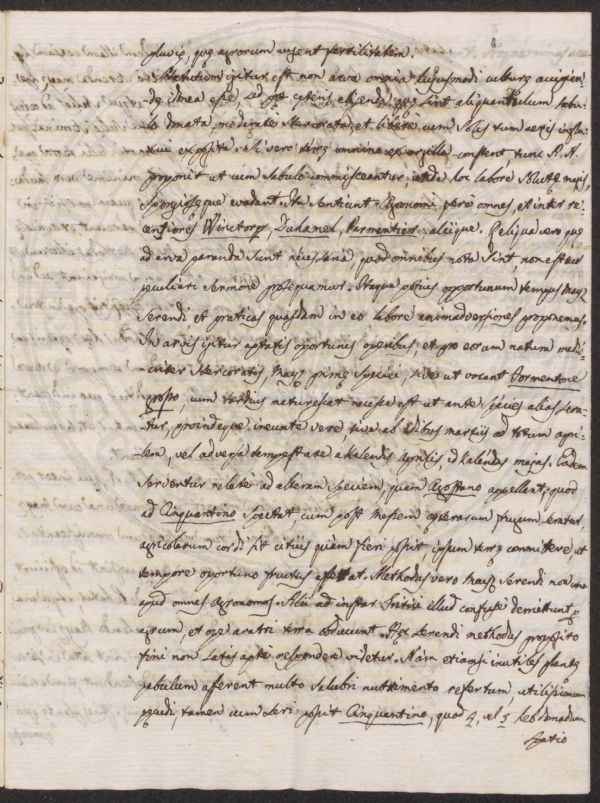 pluviæ, quæ agrorum augent fertilitatem.
igitur est non arva omnia hujusmodi culturæ accipien-
dæ idonea esse, sed præ ceteris eligenda, quæ sint aliquantulum sabu-
lo donata, moderate stercorata, et libere cum solis tum aeris
expósita. Si vero terræ omnino ex argilla constent tunc R. A.
proponit ut cum sabulo commisceantur, unde hoc labore solutæ magis,
que evadant. Ita sentiunt Agronomi fere omnes, et inter re-
centiores Duhamel, Parmentier, aliique. Reliqua vero quæ
ad arva paranda sunt necessaria, quod omnibus nota sint, non est cur
peculiari sermone prosequamur. Itaque potius opportunum tempus Mayz
serendi et praticas quasdam in eo labore animadversiones proponemus.
In arvis igitur aptatis oportunis operibus, et pro eorum natura medio-
criter stercoratis, Mayz primæ speciei, sive ut vocant Formentone
grosso, cum tardius naturescat necesse est ut ante species alias sera-
tur, proindeque ineunte vere, sive ab Idibus martiis ad totum apri-
lem, vel adversa tempestate a kalendis Aprilis, ad kalendas majas. Eadem
serventur relate ad alteram speciem, quam Agostano appellant; quod
ad Cinquantino spectat cum post messem frugum seratur
agricolarum cordi sit citius quàm fieri possit, ipsum terræ committere, ut
tempore oportuno fructus afferat. Methodus vero Mayz serendi non una
apud omnes Agronomos. Alii ad instar tritici illud confuse demittunt
agrum, et ope aratri terra obducunt. Hæc serendi methodus proposito
fini non satis aptè respondere videtur. Nàm etiamsi inutiles plantæ
pabulum afferent multo salubri nutrimento refertum, utilissimum
, tamen cum seri possit Cinquantino, quod 4, vel 5 hebdomadum
spatio